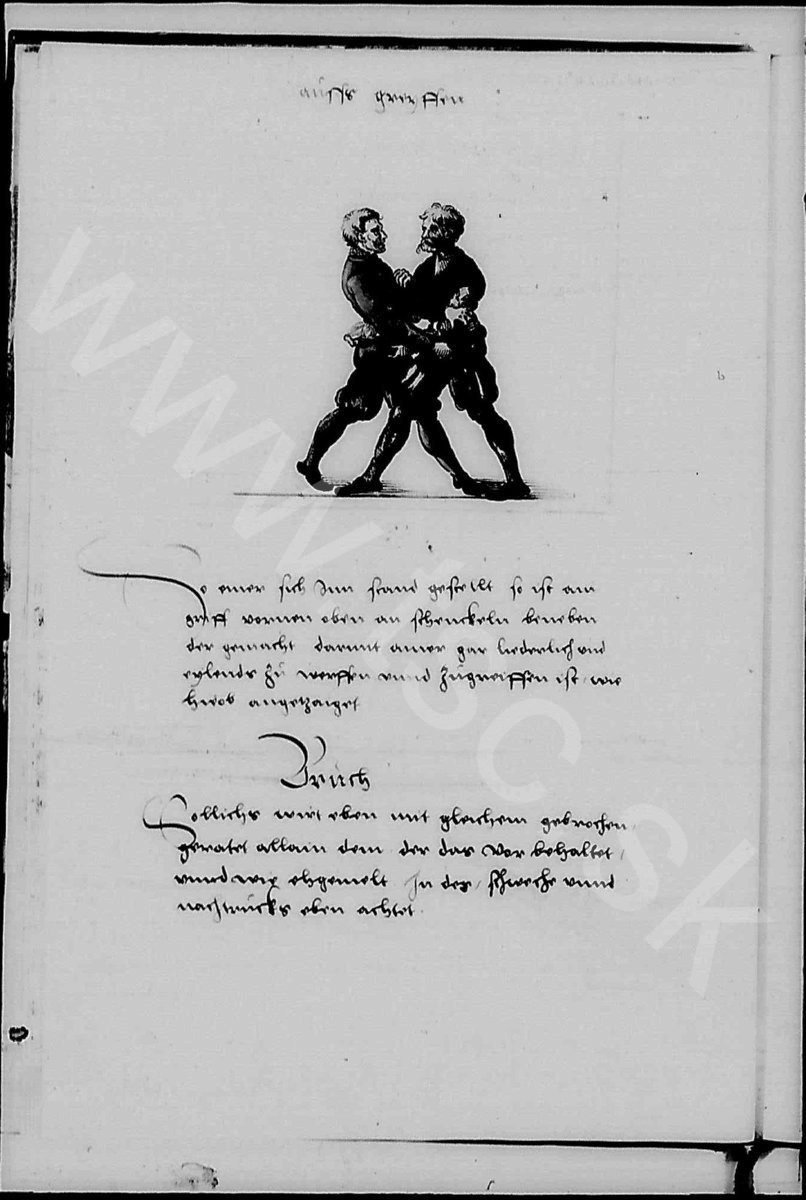 auffs greyffen
So einer sich Inn stand gestellt so ist ain
griff vornen oben an schenckeln beneben
der gemacht darmit ainer gar liederlich und
eylends zu werffen unnd zugreiffen ist, wie
hieob angetzaiget
Bruch
Sollichs wirt eben mit gleichem gebrochen,
geratet allain dem der das Vor behaltet,
unnd wie ehgemelt In der, schweche unnd
nachtrucks eben achtet.
www.isc.sk